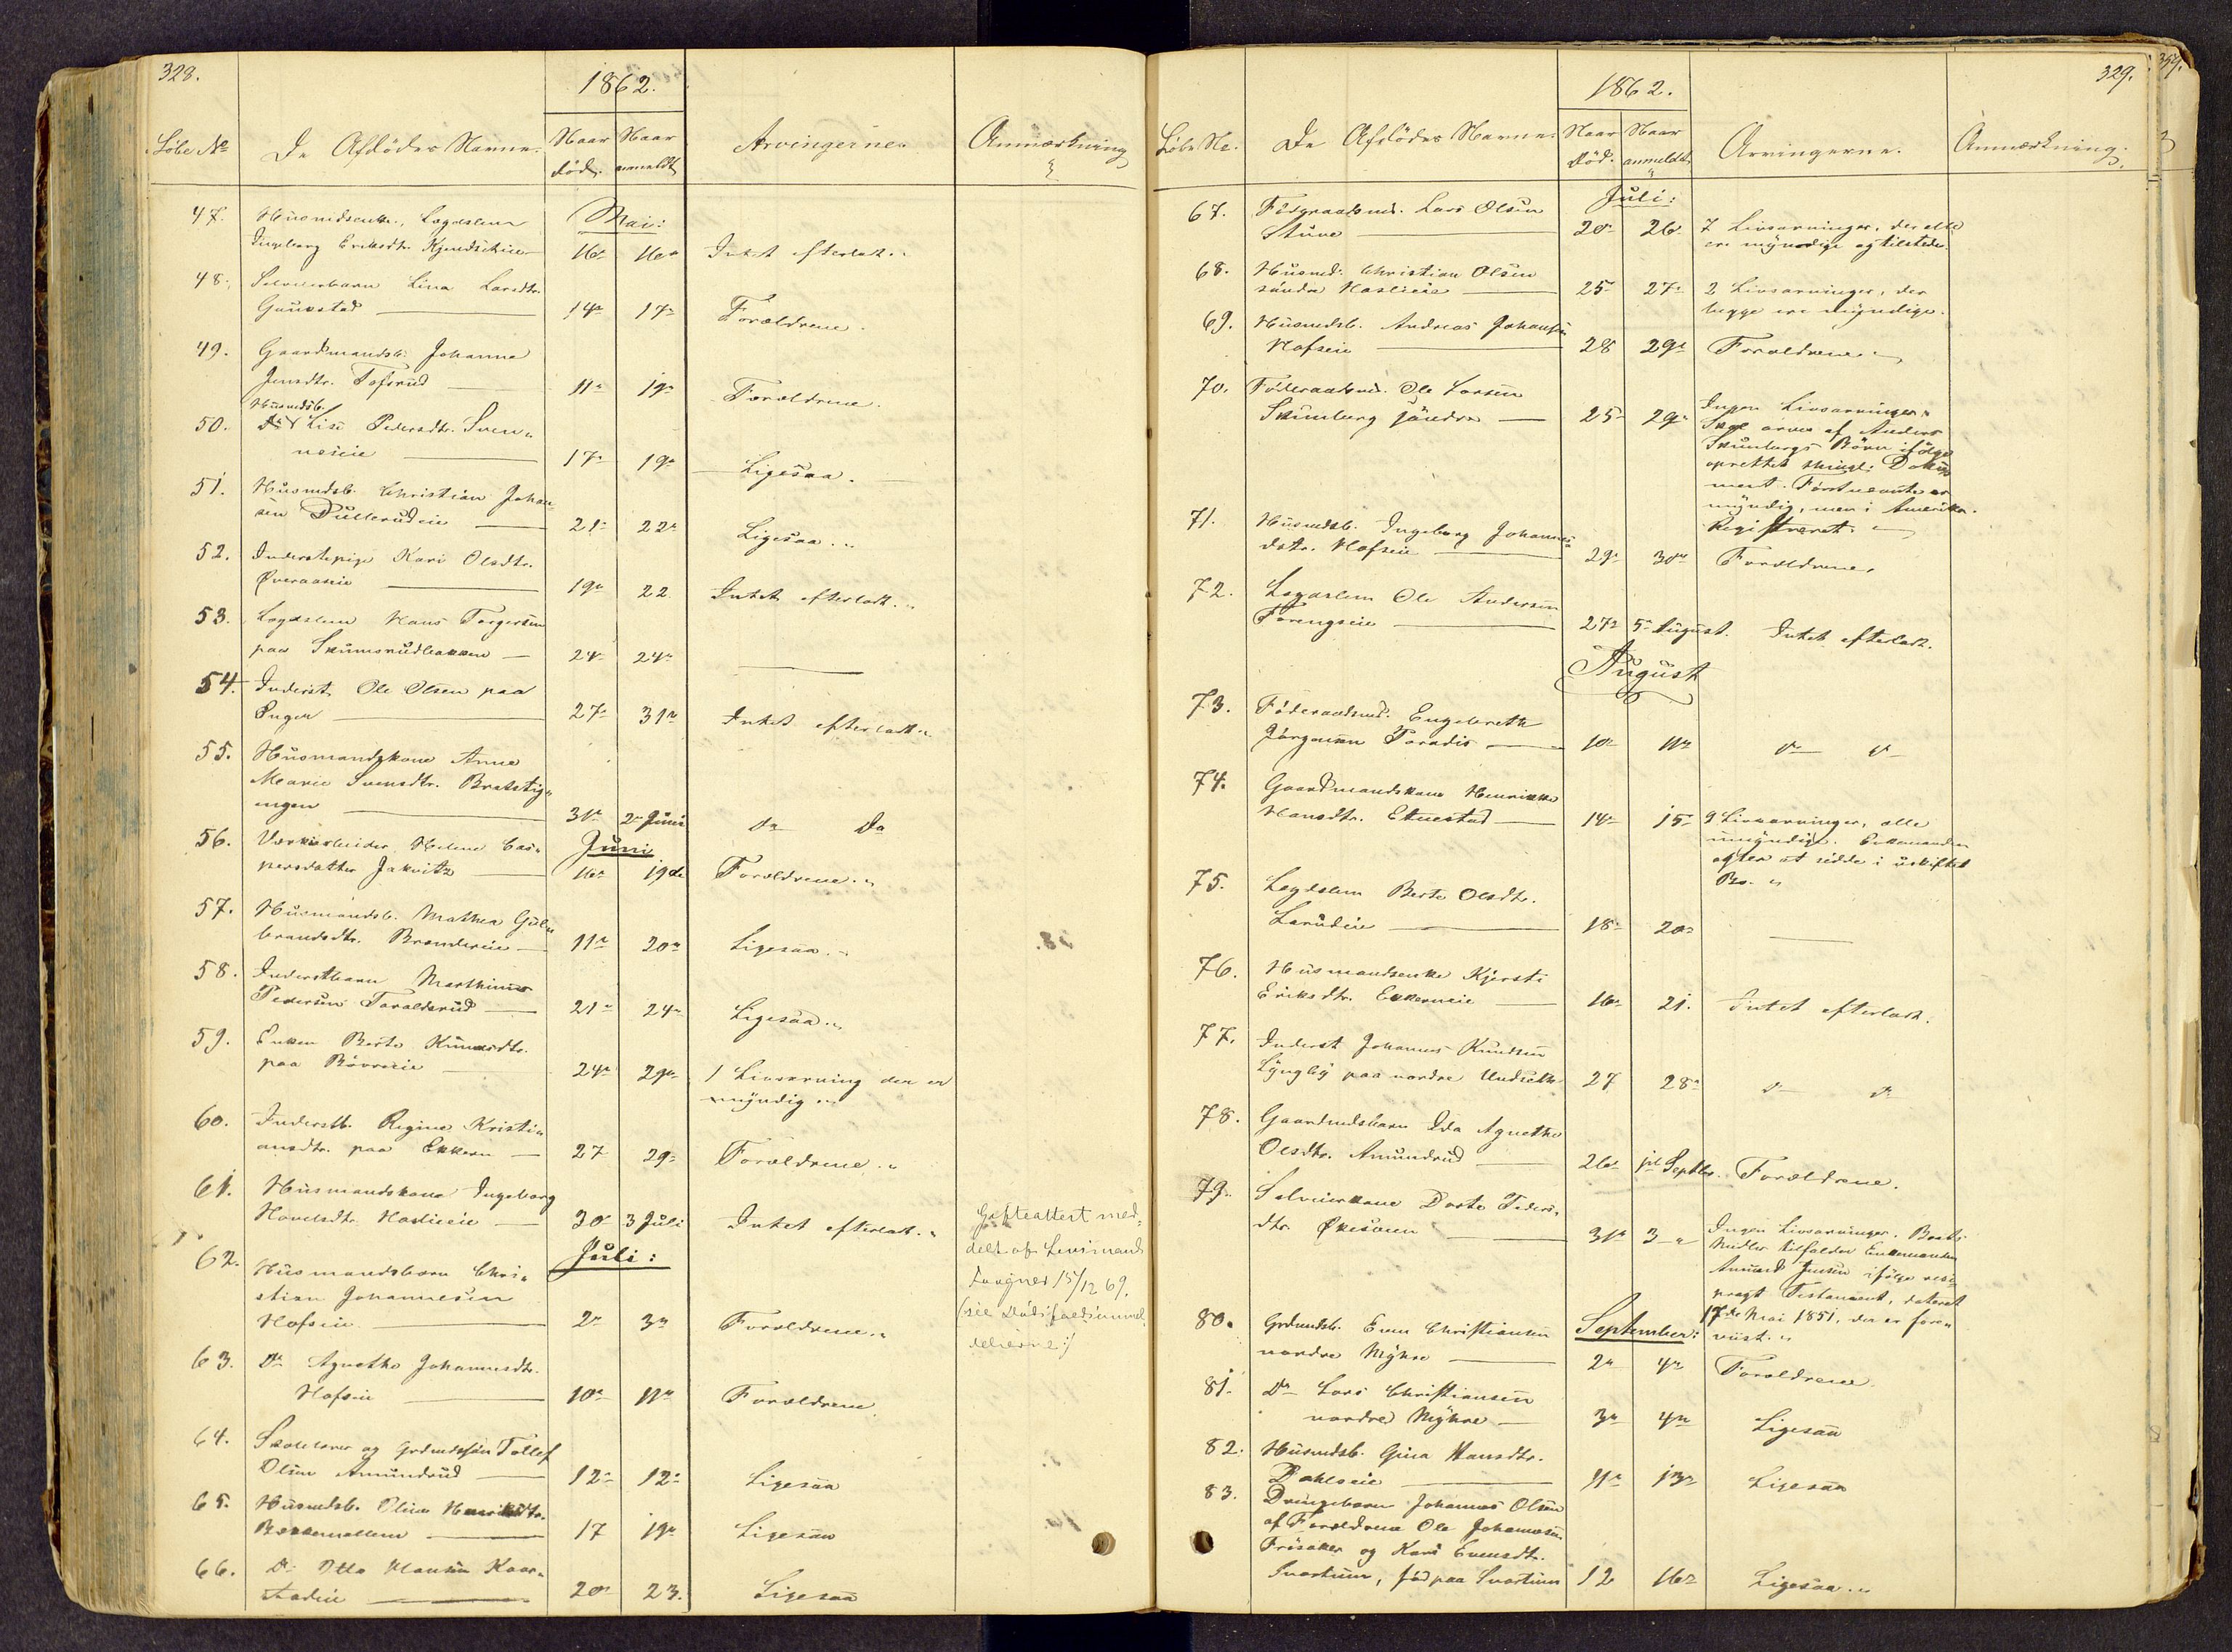 328.
1862.
Løbe No
De Afdødes Navne.
Naar død.
Naar anmeldt
Arvingerne.
Anmærkning
47. Husmdsenke, Lægdslem
Mai:
Ingeborg Eriksdtr.
16de 16de Intet efterladt.
48. Selveierbarn Lina Larsdtr.
Gunstad 14de 17de Forældrene.
49. Gaardmandsb. Johanne
Jensdtr. Tofsrud 11te 19de Forældrene.
Husmdsb.
50. Do Lise Pedersdtr. Sven-
neseie 17de 19de Ligesaa.
51. Husmdsb. Christian Johan
sen Dullerudeie 21de 22de Ligesaa.
52. Inderstepige Kari Olsdtr.
Overaaseie 19de 22 Intet efterladt.
53. Lægdslem Hans Torgersen
paa Skumsrudbakken 24 24de
54. Inderst Ole Olsen paa
Enger 27de 31te Intet efterladt.
55. Husmandskone Anne
Marie Svensdtr. Bratstig-
ningen 31te 2den Juni do Do
56. Værkarbeider Helene Cas-
Juni
persdatter Jakwitz 16de 19de Forældrene.
57. Husmandsb. Mathea Gul-
brandsdtr. Brændereie 11te 20de Ligesaa.
58. Inderstbarn Marthinus
Pedersen Taraldsrud 21de 24de Ligesaa.
59. Enken Berte Knudsdtr.
paa Bøvreeie 24de 29de 1 Livsarving der er
myndig.
60. Inderstb. Regine Kristi-
ansdtr. paa Ekkern 27 29de Forældrene.
61. Husmandskone Ingeborg
Havelsdtr. Haslieeie 30 3 Juli Intet efterladt.
Gifteattest med-
delt af Lensmand
15/12 69.
(see Dødsfaldsanmel-
delserne:/
62. Husmandsbarn Chri-
Juli:
stian Johannesen
Hofseie 2den 3die Forældrene.
63. Do Agnethe Johannesdtr.
Hofseie 10de 11te Forældrene
64. Skolelærer og Grdmdssøn Tollef
Olsen Amundrud 12te 12te Ligesaa
65. Husmdsb. Oline Henriksdtr.
Bækkemellem 17 19de Ligesaa
66. Do Otto Hansen Kaar-
stadeie 20de 23. Ligesaa
329.
1862.
Løbe No.
De Afdødes Navne.
Naar Død.
Naar anmeldt.
Arvingerne.
Anmærkning.
Juli:
67. Føderaadsmd. Lars Olsen
Stuve 20de 26 7 Livsarvinger, der alle
ere myndige og tilstede.
68. Husmd. Christian Olsen
søndre Haslieeie 25 27de 2 Livsarvinger, der
begge ere myndige.
69. Husmdsb. Andreas Johansen
Hofseie 28 29de Forældrene.
70. Føderaadsmd. Ole Larsen
Skinberg søndre 25 29de Ingen Livsarvinger.
Skal arves af Anders
Skinbergs Børn ifølge
oprettet thingl. Doku-
ment. Førstnævnte er
myndig, men i Amerika.
Registreret.
71. Husmdsb. Ingeborg Johannes-
dotr. Hofseie 29de 30te Forældrene.
72. Lægdslem Ole Andersen
Forengseie 27de 5te August. Intet efterladt.
August
73. Føderaadsmd. Engebreth
Jørgensen Paradis 10de 11te do do
74. Gaardmandskone Henrikke
Hansdtr. Etnestad 14de 15de 9 Livsarvinger, alle
umyndige. Enkemanden
agter at sidde i uskiftet
Bo.
75. Lægdslem Berte Olsdtr.
Larudeie 18de 20de
76. Husmandsenke Kjersti
Eriksdtr. Ekkerneie 16de 21. Intet efterladt.
77. Inderst Johannes Knudsen
Lyngby paa nordre Undseth 27 28de do do
78. Gaardmdsbarn Ida Agnethe
Olsdtr. Amundrud 26de 1ste Septbr. Forældrene.
79. Selveierkone Dorte Peders-
dtr. Økesveen 31te 3 Ingen Livsarvinger. Boets
Midler tilfalder Enkemanden
Amund Jensen ifølge reci-
progt Testament, dateret
17de Mai 1851, der er fore-
viist.
80. Grdmdsb. Even Christiansen
September:
nordre Myhre 2den 4de Forældrene.
81. Do Lars Christiansen
nordre Myhre 3die 4de Ligesaa
82. Husmdsb. Gina Hansdtr.
Dahlseie 11te 13de Ligesaa
83. Drengebarn Johannes Olsen
af Forældrene Ole Johannesen
Frøsaker og Kari Evensdtr.
Svartum, fød paa Svartum 12 16de Ligesaa.